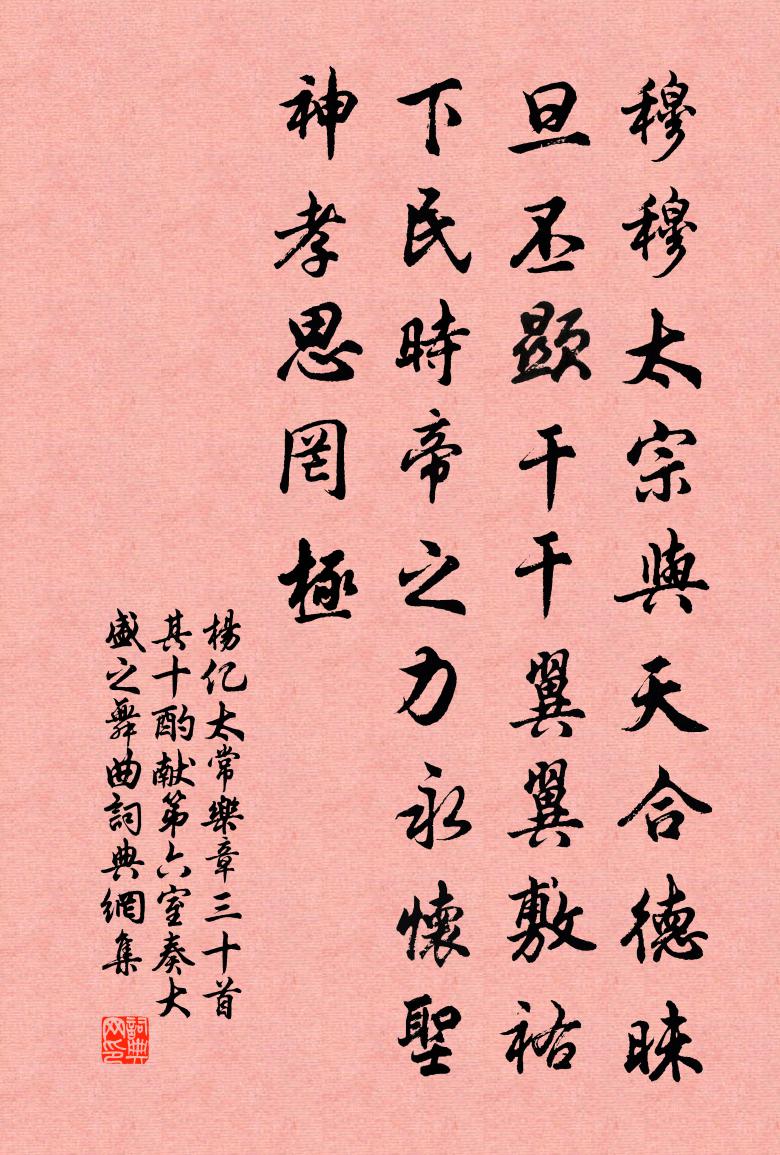 穆穆太宗與天合德昧
旦丕顯干干翼翼敷祐
下民時帝之力永懷聖
神孝思罔極
楊億太常樂章三十首
其十酌献第六室奏大
盛之舞曲詞典網集
詞典网印